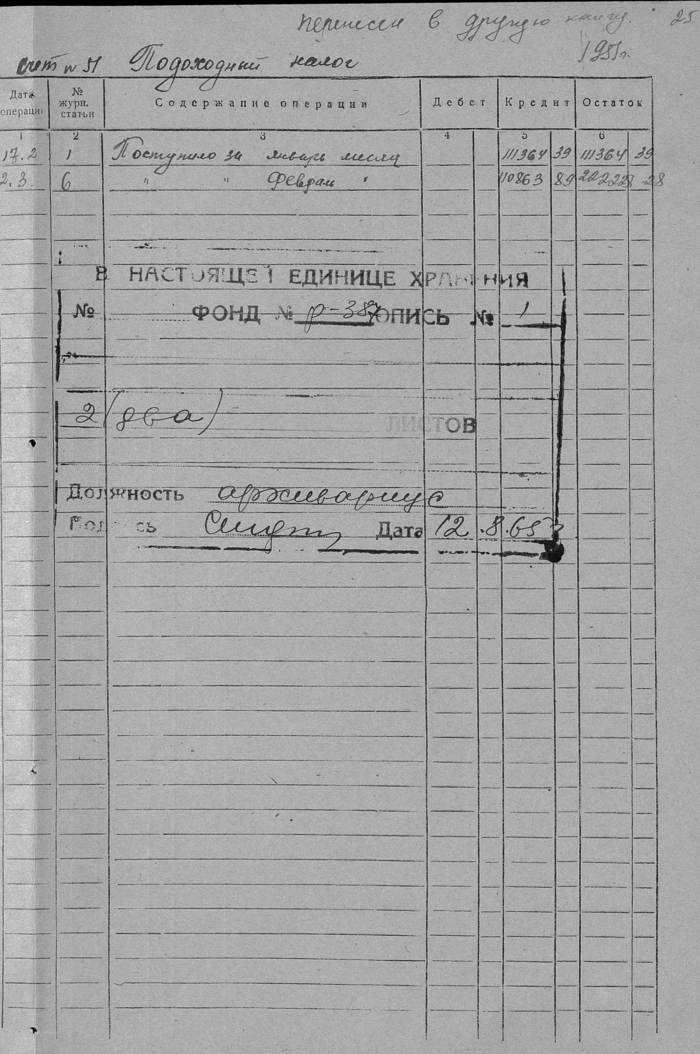 Перенесен в другую книгу. 25
1951г.
Счет № 51 Подоходный налог
Дата операции № журн. статьи Содержание операции Дебет Кредит Остаток
1 2 3 4 5 6
17.2 1 Поступило за январь месяц 111364 39 111364 39
2.3. 6 " " Февраль " 110863 89 222228 28
В НАСТОЯЩЕЙ ЕДИНИЦЕ ХРАНЕНИЯ
№ ФОНД № р-387 ОПИСЬ № 1
2 (два) ЛИСТОВ
Должность архивариус
Подпись Дата 12.8.65